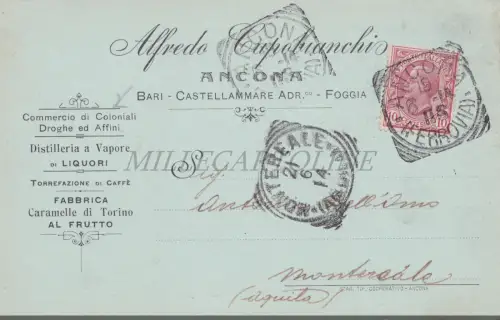 Alfredo Capobianchi
ANCONA
BARI - CASTELLAMMARE ADR.co - FOGGIA
Commercio di Coloniali
Droghe ed Affini
Distilleria a Vapore
DI LIQUORI
TORREFAZIONE DI CAFFÈ
FABBRICA
Caramelle di Torino
AL FRUTTO
MILLECARTOLINE
ANCONA
(FERROVIA)
ANCONA
MONTEREALE
21
6
14
Sig
Montereale
(Aquila)
STAB. TIP. COOPERATIVO - ANCONA